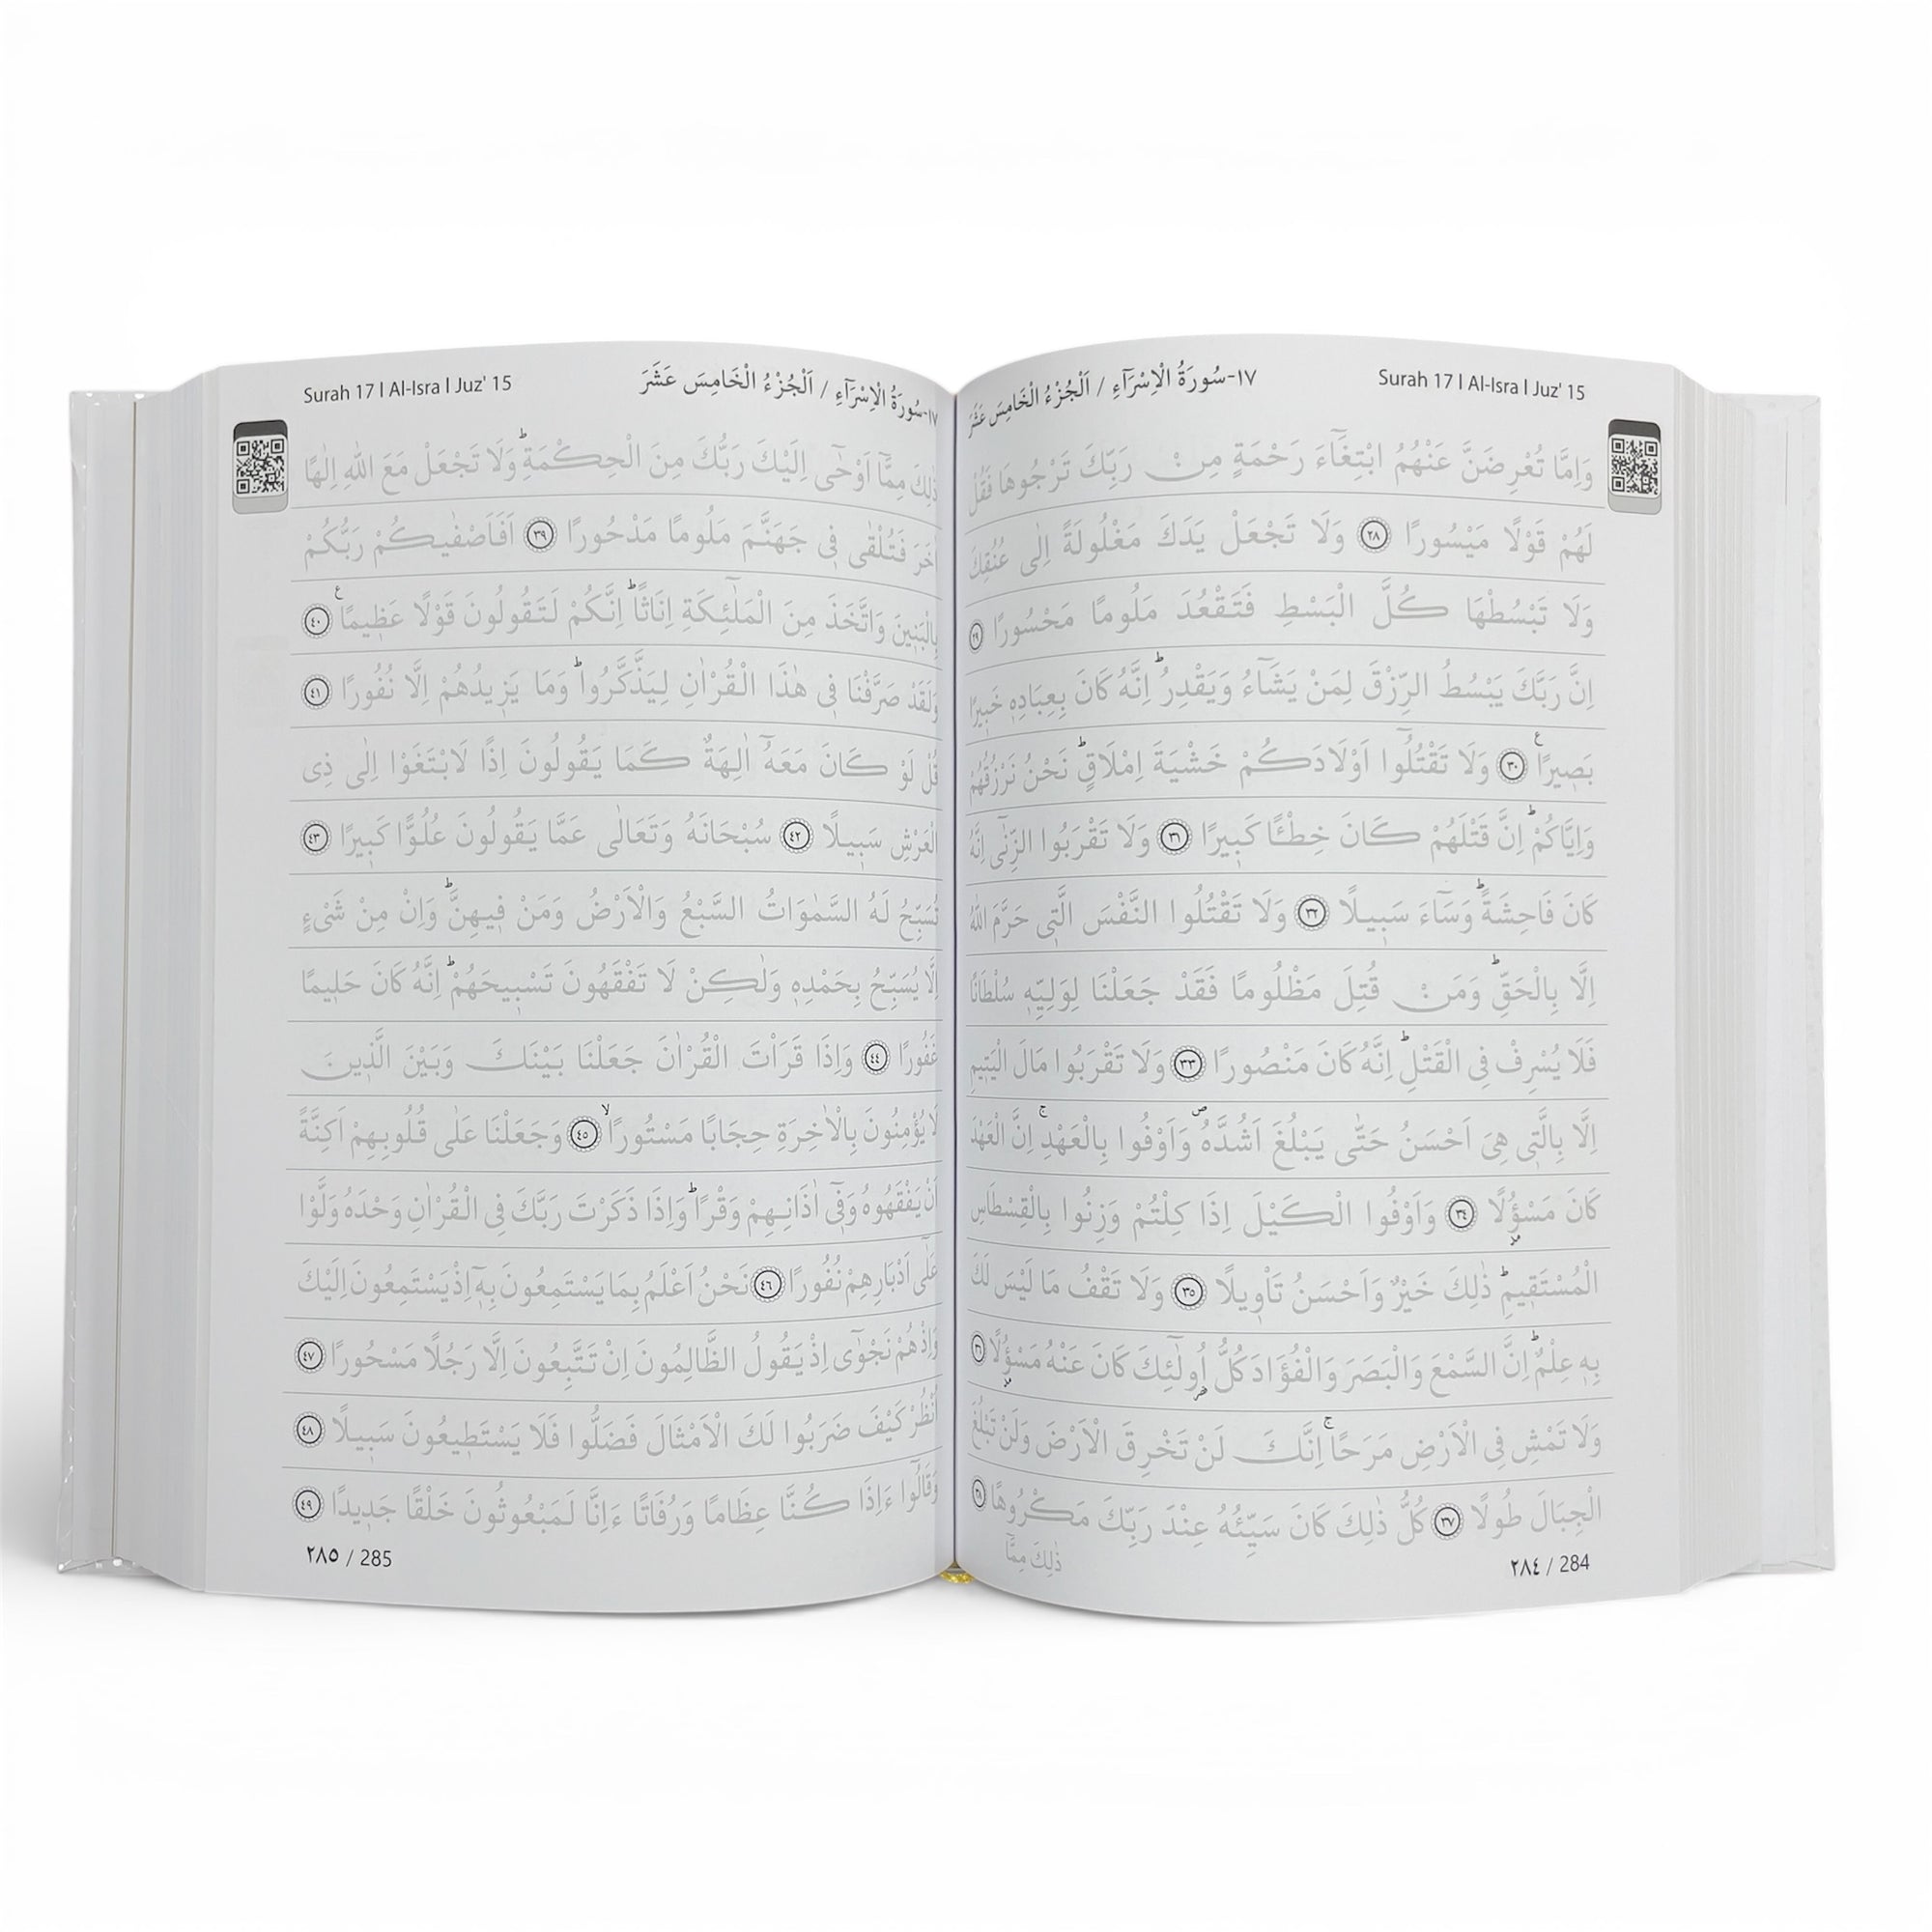 Surah 17 I Al-Isra I Juz' 15
١٧-سُورَةُ الْاِسْرَٓاءِ / اَلْجُزْءُ الْخَامِسَ عَشَرَ
وَاِمَّا تُعْرِضَنَّ عَنْهُمُ ابْتِغَٓاءَ رَحْمَةٍ مِنْ رَبِّكَ تَرْجُوهَا فَقُلْ
لَهُمْ قَوْلًا مَيْسُورًا ٢٨ وَلَا تَجْعَلْ يَدَكَ مَغْلُولَةً اِلٰى عُنُقِكَ
وَلَا تَبْسُطْهَا كُلَّ الْبَسْطِ فَتَقْعُدَ مَلُومًا مَحْسُورًا ٢٩
اِنَّ رَبَّكَ يَبْسُطُ الرِّزْقَ لِمَنْ يَشَٓاءُ وَيَقْدِرُۜ اِنَّهُ كَانَ بِعِبَادِهٖ خَبٖيرًا
بَصٖيرًا۟ ٣٠ وَلَا تَقْتُلُٓوا اَوْلَادَكُمْ خَشْيَةَ اِمْلَاقٍۜ نَحْنُ نَرْزُقُهُمْ
وَاِيَّاكُمْۜ اِنَّ قَتْلَهُمْ كَانَ خِطْـًٔا كَبٖيرًا ٣١ وَلَا تَقْرَبُوا الزِّنٰٓى اِنَّهُ
كَانَ فَاحِشَةًۜ وَسَٓاءَ سَبٖيلًا ٣٢ وَلَا تَقْتُلُوا النَّفْسَ الَّتٖى حَرَّمَ اللّٰهُ
اِلَّا بِالْحَقِّۜ وَمَنْ قُتِلَ مَظْلُومًا فَقَدْ جَعَلْنَا لِوَلِيِّهٖ سُلْطَانًا
فَلَا يُسْرِفْ فِى الْقَتْلِۜ اِنَّهُ كَانَ مَنْصُورًا ٣٣ وَلَا تَقْرَبُوا مَالَ الْيَتٖيمِ
اِلَّا بِالَّتٖى هِىَ اَحْسَنُ حَتّٰى يَبْلُغَ اَشُدَّهُۖ وَاَوْفُوا بِالْعَهْدِۚ اِنَّ الْعَهْدَ
كَانَ مَسْؤُ۫لًا ٣٤ وَاَوْفُوا الْكَيْلَ اِذَا كِلْتُمْ وَزِنُوا بِالْقِسْطَاسِ
الْمُسْتَقٖيمِۜ ذٰلِكَ خَيْرٌ وَاَحْسَنُ تَأْوٖيلًا ٣٥ وَلَا تَقْفُ مَا لَيْسَ لَكَ
بِهٖ عِلْمٌۜ اِنَّ السَّمْعَ وَالْبَصَرَ وَالْفُؤَادَ كُلُّ اُو۬لٰٓئِكَ كَانَ عَنْهُ مَسْؤُ۫لًا ٣٦
وَلَا تَمْشِ فِى الْاَرْضِ مَرَحًاۚ اِنَّكَ لَنْ تَخْرِقَ الْاَرْضَ وَلَنْ تَبْلُغَ
الْجِبَالَ طُولًا ٣٧ كُلُّ ذٰلِكَ كَانَ سَيِّئُهُ عِنْدَ رَبِّكَ مَكْرُوهًا ٣٨
ذٰلِكَ مِمَّٓا
٢٨٤ / 284
Surah 17 I Al-Isra I Juz' 15
١٧-سُورَةُ الْاِسْرَٓاءِ / اَلْجُزْءُ الْخَامِسَ عَشَرَ
ذٰلِكَ مِمَّٓا اَوْحٰٓى اِلَيْكَ رَبُّكَ مِنَ الْحِكْمَةِۜ وَلَا تَجْعَلْ مَعَ اللّٰهِ اِلٰهًا
اٰخَرَ فَتُلْقٰى فٖى جَهَنَّمَ مَلُومًا مَدْحُورًا ٣٩ اَفَاَصْفٰيكُمْ رَبُّكُمْ
بِالْبَنٖينَ وَاتَّخَذَ مِنَ الْمَلٰٓئِكَةِ اِنَاثًاۜ اِنَّكُمْ لَتَقُولُونَ قَوْلًا عَظٖيمًا۟ ٤٠
وَلَقَدْ صَرَّفْنَا فٖى هٰذَا الْقُرْاٰنِ لِيَذَّكَّرُواۜ وَمَا يَزٖيدُهُمْ اِلَّا نُفُورًا ٤١
قُلْ لَوْ كَانَ مَعَهُٓ اٰلِهَةٌ كَمَا يَقُولُونَ اِذًا لَابْتَغَوْا اِلٰى ذِى
الْعَرْشِ سَبٖيلًا ٤٢ سُبْحَانَهُ وَتَعَالٰى عَمَّا يَقُولُونَ عُلُوًّا كَبٖيرًا ٤٣
تُسَبِّحُ لَهُ السَّمٰوَاتُ السَّبْعُ وَالْاَرْضُ وَمَنْ فٖيهِنَّۜ وَاِنْ مِنْ شَىْءٍ
اِلَّا يُسَبِّحُ بِحَمْدِهٖ وَلٰكِنْ لَا تَفْقَهُونَ تَسْبٖيحَهُمْۜ اِنَّهُ كَانَ حَلٖيمًا
غَفُورًا ٤٤ وَاِذَا قَرَأْتَ الْقُرْاٰنَ جَعَلْنَا بَيْنَكَ وَبَيْنَ الَّذٖينَ
لَا يُؤْمِنُونَ بِالْاٰخِرَةِ حِجَابًا مَسْتُورًاۙ ٤٥ وَجَعَلْنَا عَلٰى قُلُوبِهِمْ اَكِنَّةً
اَنْ يَفْقَهُوهُ وَفٖٓى اٰذَانِهِمْ وَقْرًاۜ وَاِذَا ذَكَرْتَ رَبَّكَ فِى الْقُرْاٰنِ وَحْدَهُ وَلَّوْا
عَلٰٓى اَدْبَارِهِمْ نُفُورًا ٤٦ نَحْنُ اَعْلَمُ بِمَا يَسْتَمِعُونَ بِهٖٓ اِذْ يَسْتَمِعُونَ اِلَيْكَ
وَاِذْ هُمْ نَجْوٰٓى اِذْ يَقُولُ الظَّالِمُونَ اِنْ تَتَّبِعُونَ اِلَّا رَجُلًا مَسْحُورًا ٤٧
اُنْظُرْ كَيْفَ ضَرَبُوا لَكَ الْاَمْثَالَ فَضَلُّوا فَلَا يَسْتَطٖيعُونَ سَبٖيلًا ٤٨
وَقَالُٓوا ءَاِذَا كُنَّا عِظَامًا وَرُفَاتًا ءَاِنَّا لَمَبْعُوثُونَ خَلْقًا جَدٖيدًا ٤٩
٢٨٥ / 285